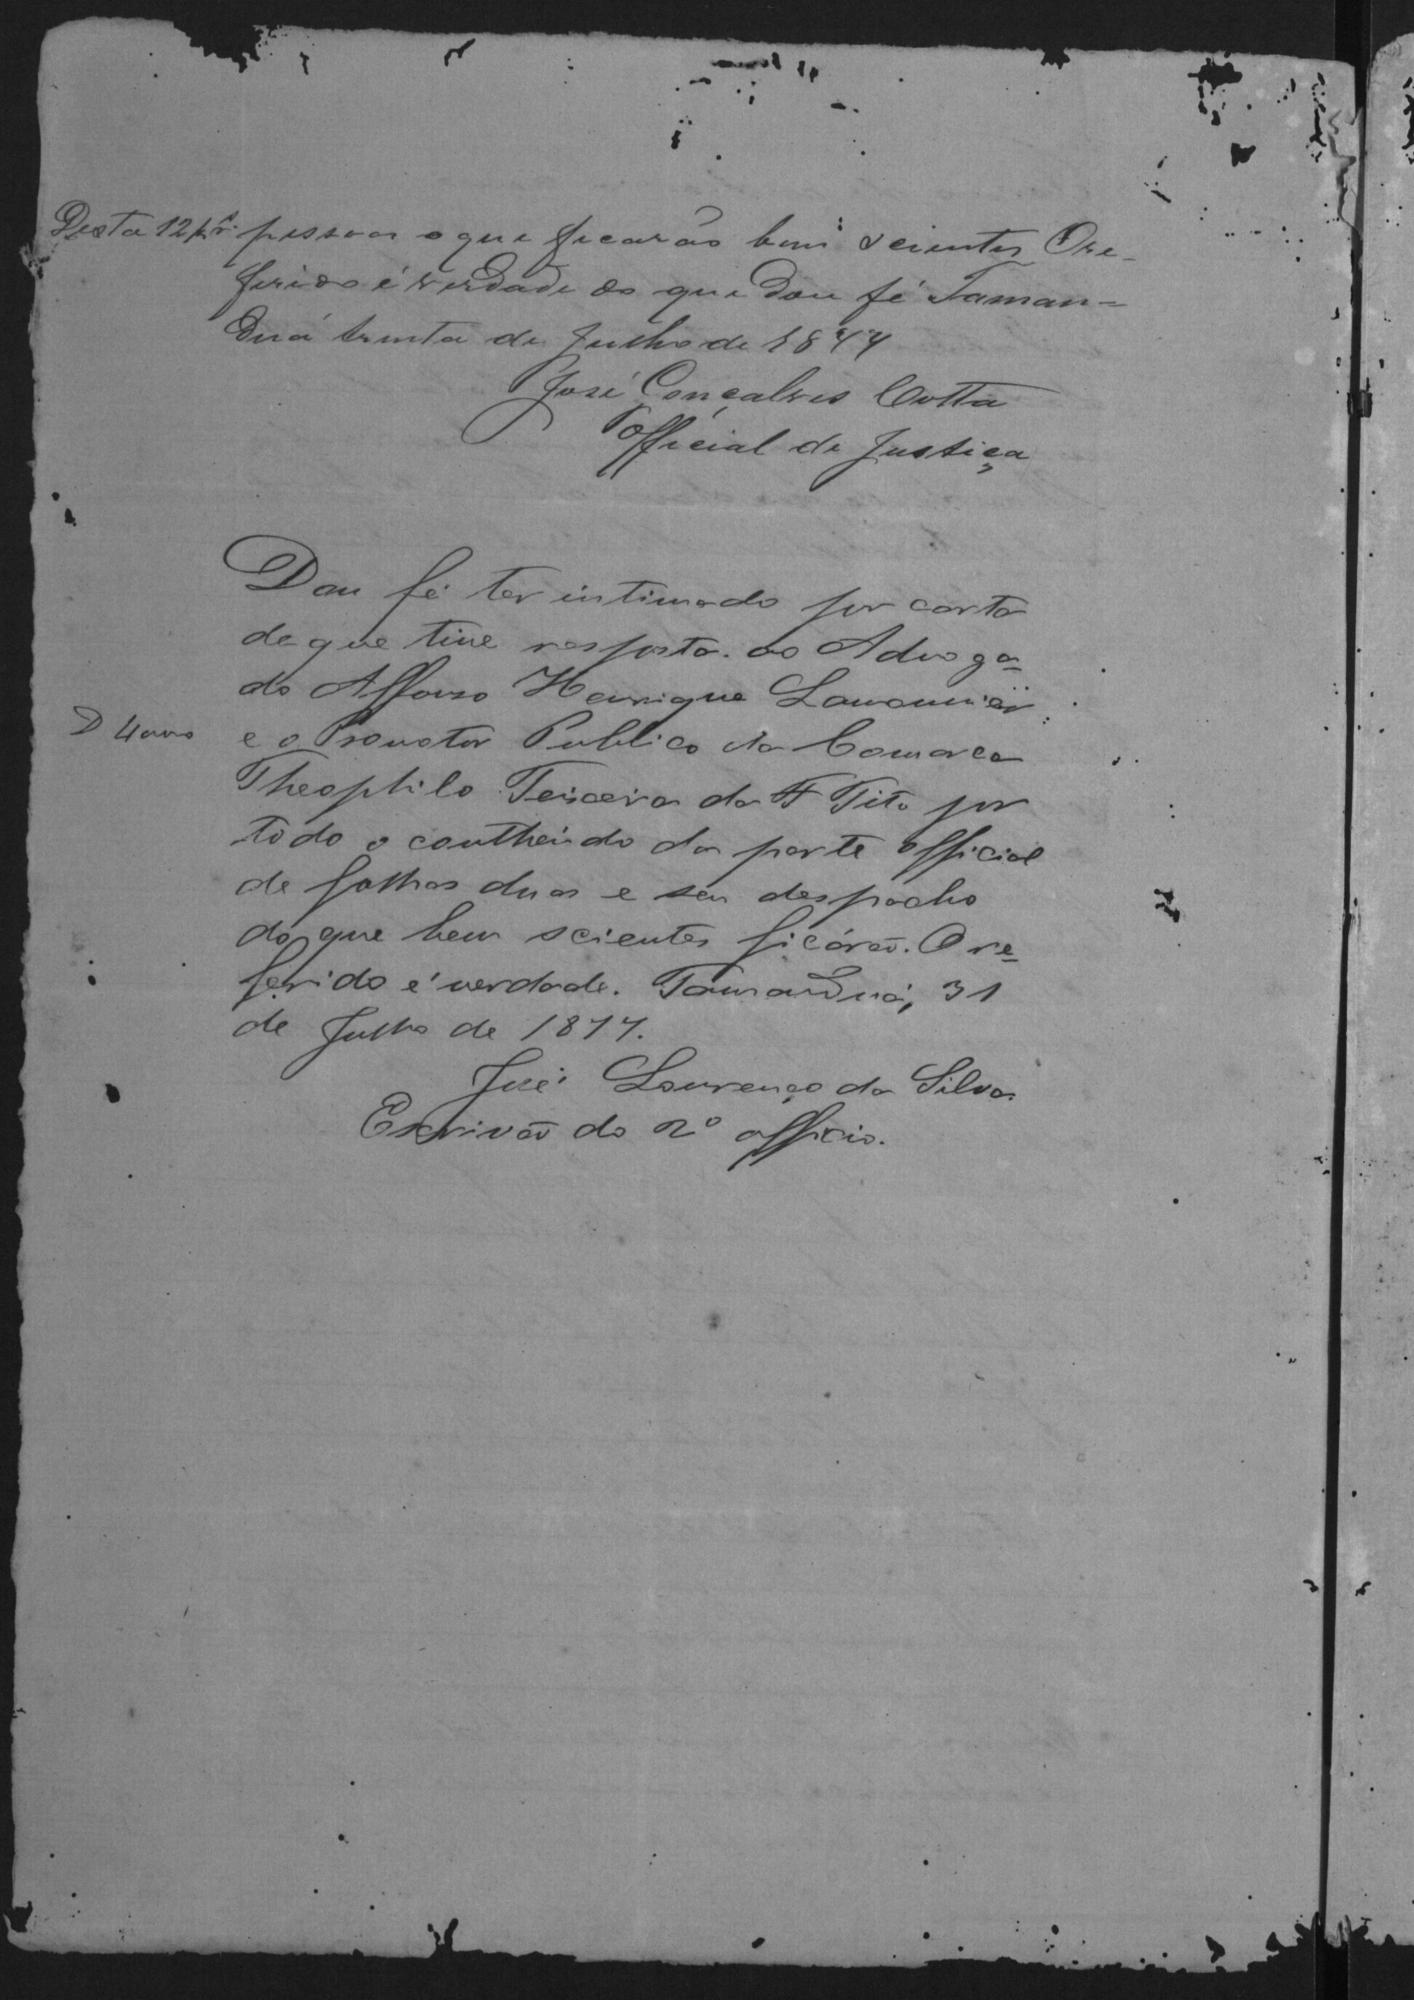 Desta 12
pessoas o que ficarão bem scientes O re-
ferido é verdade do que Dou fé Taman=
Duá trinta de Julho de 1877
José Gonçalves Cotta
Official de Justiça
Dou fé ter intimado por carta
de que tive resposta. ao Advoga=
do Affonso Henrique Lamounier
D 4000
e o Promotor Publico da Comarca
Theophilo Teixeira da F Tito por
todo o contheudo da parte official
de folhas duas e seu despacho
do que bem scientes ficárão. O re=
ferido é verdade. TamanDuá, 31
de Julho de 1877.
José Lourenço da Silva
Escrivão do 2º officio.